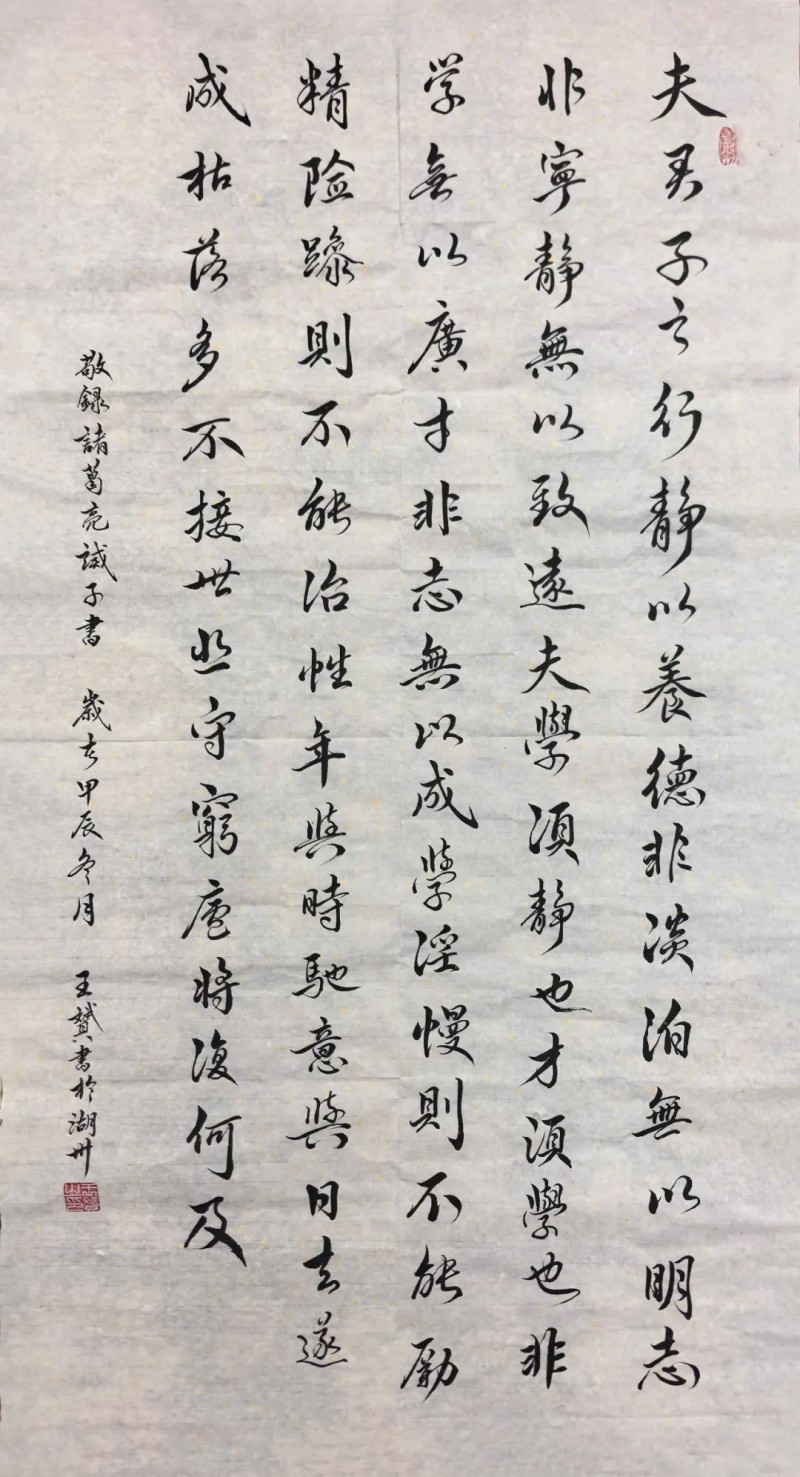 夫君子之行静以養德非淡泊無以明志
非寧静無以致遠夫學須静也才須學也非
学無以廣才非志無以成學淫慢則不能励
精险躁則不能治性年與時馳意與日去遂
成枯落多不接世悲守窮廬將復何及
敬録諸葛亮誡子書 歲在甲辰冬月 王贇書於湖州